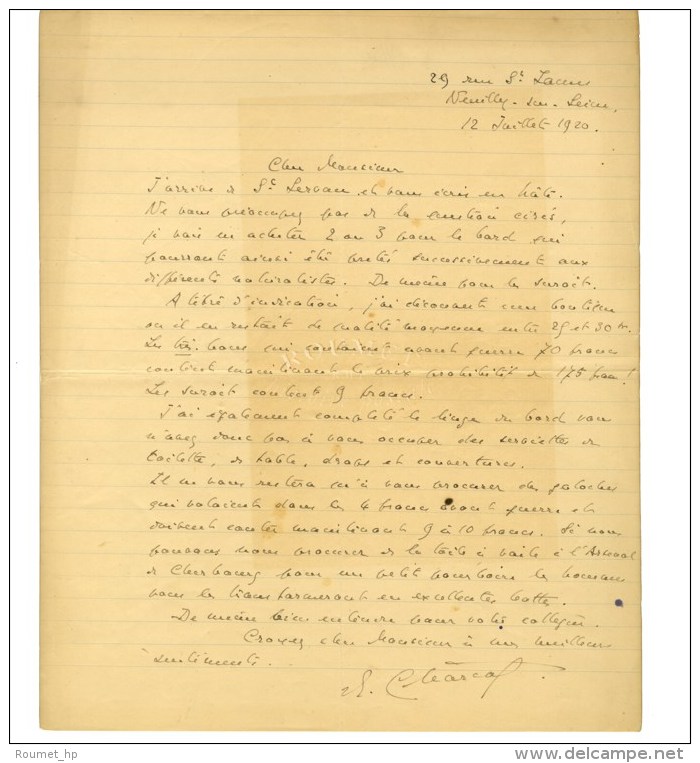 29 rue St James
Neuilly-sur-Seine,
12 Juillet 1920.
Cher Monsieur
J'arrive de St Servan et vous écris en hâte.
Ne vous préoccupez pas de la question cirés,
je vais en acheter 2 ou 3 pour le bord qui
pourront ainsi être prêtés successivement aux
différents naturalistes. De même pour les suroît.
A titre d'indication, j'ai découvert une boutique
où il en restait de qualité moyenne entre 25 et 30 frs.
Les très bons qui coûtaient avant guerre 70 francs
coûtent maintenant le prix prohibitif de 175 francs!
Les suroît coûtent 9 francs.
J'ai également complété le linge du bord vous
n'avez donc pas à vous occuper des serviettes de
toilette, de table, draps et couvertures.
Il ne vous restera qu'à vous procurer des galoches
qui valaient dans les 4 francs avant guerre et
doivent coûter maintenant 9 à 10 francs. Si nous
pouvons nous procurer de la toile à voile à l'Arsenal
de Cherbourg pour un petit pourboire les hommes
vous les transformeront en excellentes bottes.
De même bien entendu pour votre collègue.
Croyez cher Monsieur à mes meilleurs
sentiments.
Charcot
ROUMET
Roumet_hp
© delcampe.net